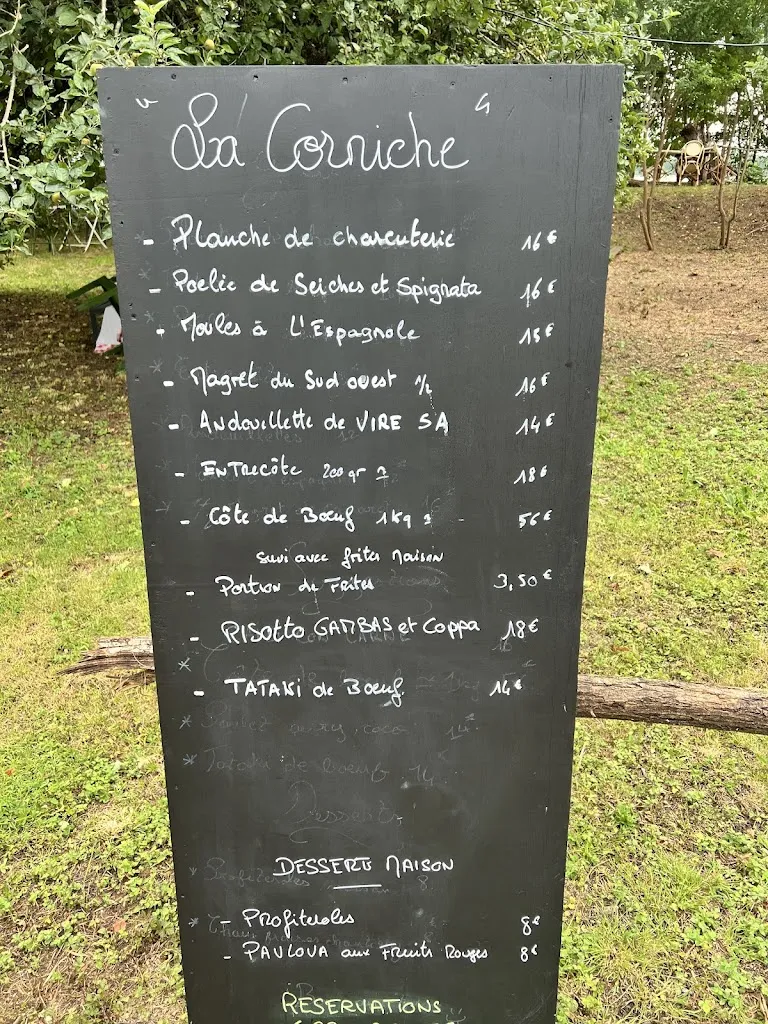 " La Corniche "
- Planche de charcuterie 16€
- Poelée de Seiches et Spignata 16€
- Moules à L'Espagnole 15€
- Magret du Sud ouest 1/2 16€
- Andouillette de VIRE 5A 14€
- ENTrecôte 200gr 18€
- Côte de Bœuf 1Kg 56€
Suvi avec frites Maison
- Portion de Frites 3,50€
- RISOTTO GAMBAS et Coppa 18€
- TATAKI de Bœuf 14€
DESSERTS MAISON
- Profiteroles 8€
- PAVLOVA aux Fruits Rouges 8€
RESERVATIONS